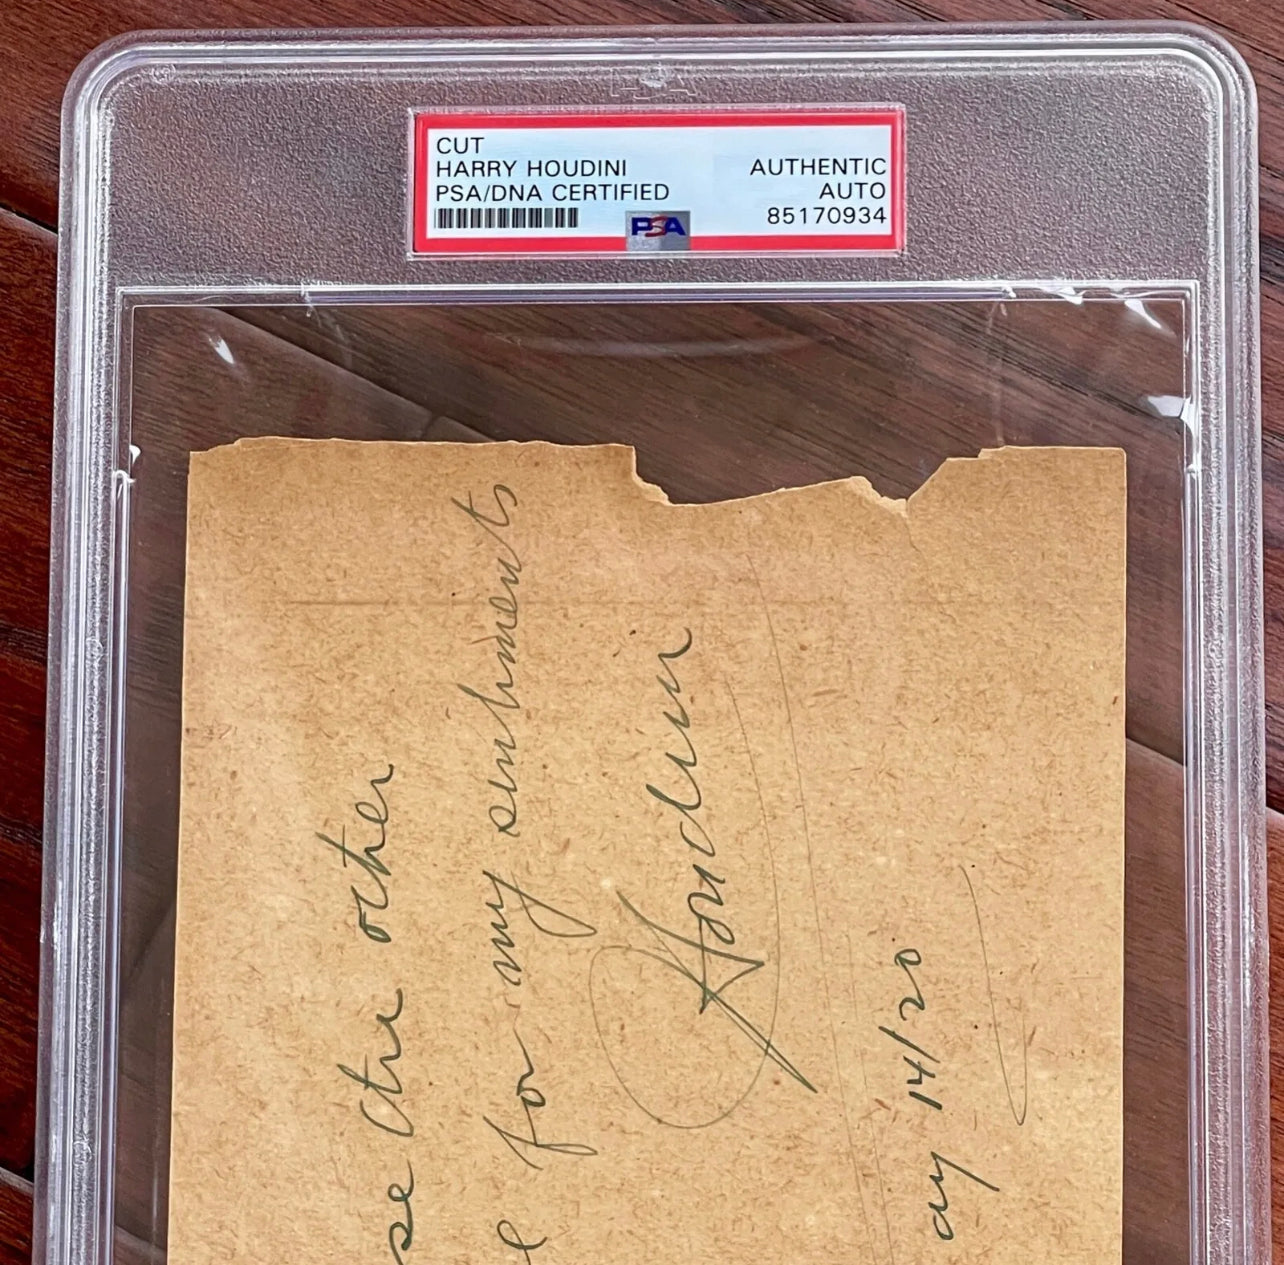 CUT
HARRY HOUDINI
PSA/DNA CERTIFIED
AUTHENTIC
AUTO
85170934
PSA
se the other
for my sentiments
Houdini
ay 14/20